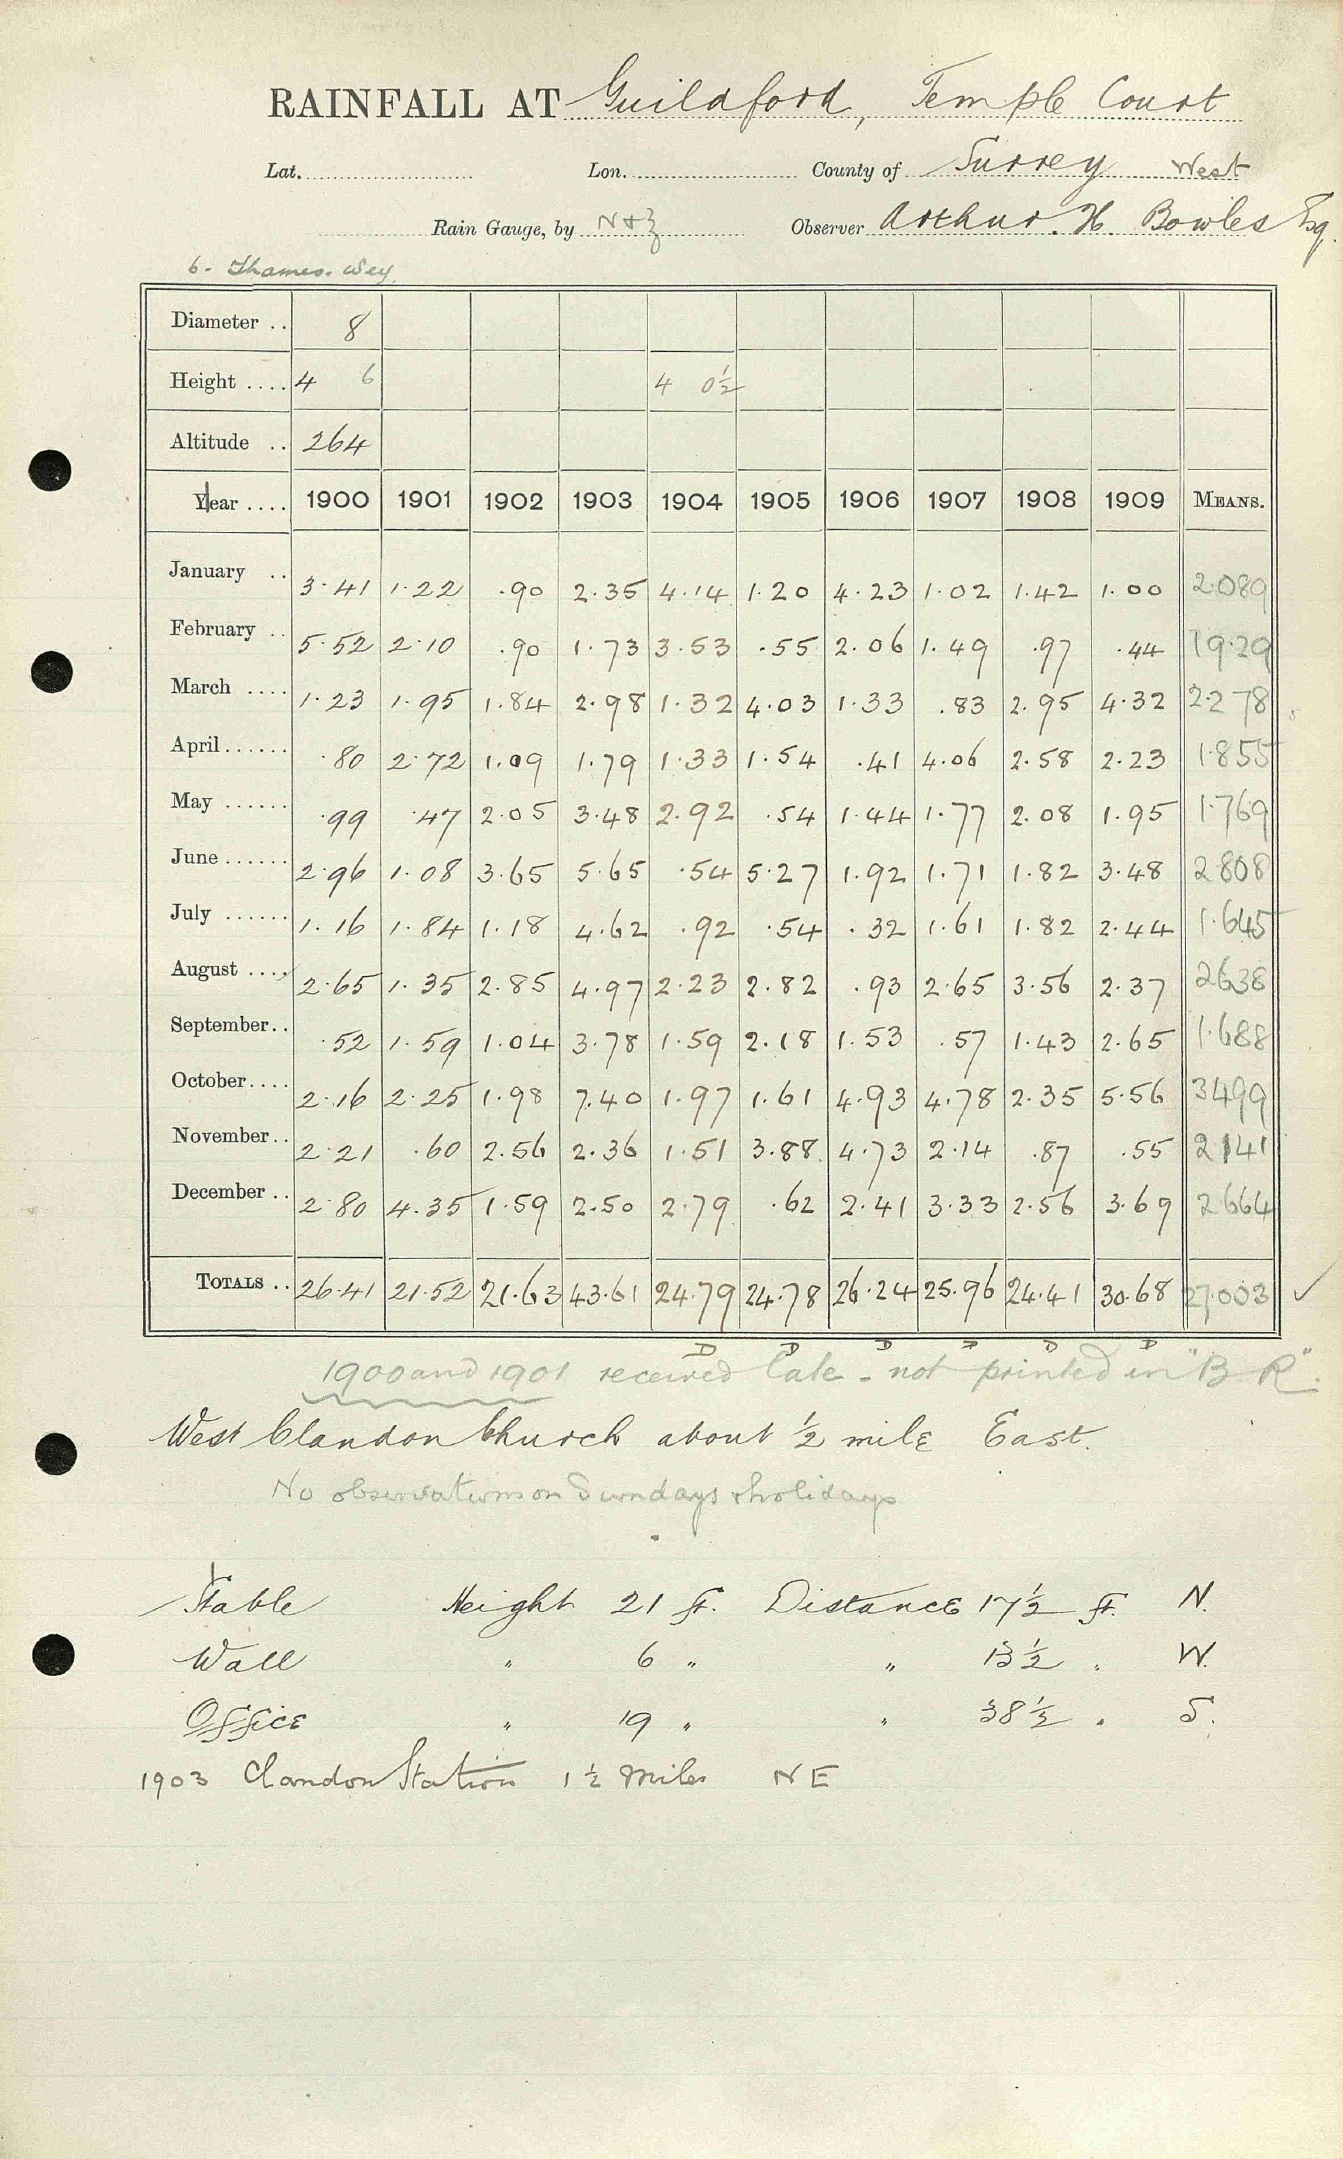 RAINFALL AT Guildford, Temple Court
Lat. Lon. County of Surrey West
Rain Gauge, by N & Z Observer Arthur. H. Bowles Esq.
6. Thames. Wey.
Diameter .. 8
Height .... 4 6 4 0½
Altitude .. 264
Year .... 1900 1901 1902 1903 1904 1905 1906 1907 1908 1909 MEANS.
January .. 3.41 1.22 .90 2.35 4.14 1.20 4.23 1.02 1.42 1.00 2.089
February .. 5.52 2.10 .90 1.73 3.53 .55 2.06 1.49 .97 .44 1929
March .... 1.23 1.95 1.84 2.98 1.32 4.03 1.33 .83 2.95 4.32 2278
April ...... .80 2.72 1.09 1.79 1.33 1.54 .41 4.06 2.58 2.23 1.855
May ...... .99 .47 2.05 3.48 2.92 .54 1.44 1.77 2.08 1.95 1.769
June ...... 2.96 1.08 3.65 5.65 .54 5.27 1.92 1.71 1.82 3.48 2808
July ...... 1.16 1.84 1.18 4.62 .92 .54 .32 1.61 1.82 2.44 1.645
August .... 2.65 1.35 2.85 4.97 2.23 2.82 .93 2.65 3.56 2.37 2638
September.. .52 1.59 1.04 3.78 1.59 2.18 1.53 .57 1.43 2.65 1.688
October.... 2.16 2.25 1.98 7.40 1.97 1.61 4.93 4.78 2.35 5.56 3499
November.. 2.21 .60 2.56 2.36 1.51 3.88 4.73 2.14 .87 .55 2141
December .. 2.80 4.35 1.59 2.50 2.79 .62 2.41 3.33 2.56 3.69 2664
TOTALS .. 26.41 21.52 21.63 43.61 24.79 24.78 26.24 25.96 24.41 30.68 27.003 ✓
D D D D D D
1900 and 1901 received late - not printed in "B R".
West Clandon Church about ½ mile East.
No observations on Sundays & holidays
Stable Height 21 ft. Distance 17½ ft. N.
Wall " 6 " " 13½ " W.
Office " 19 " " 38½ " S.
1903 Clandon Station 1½ Miles NE